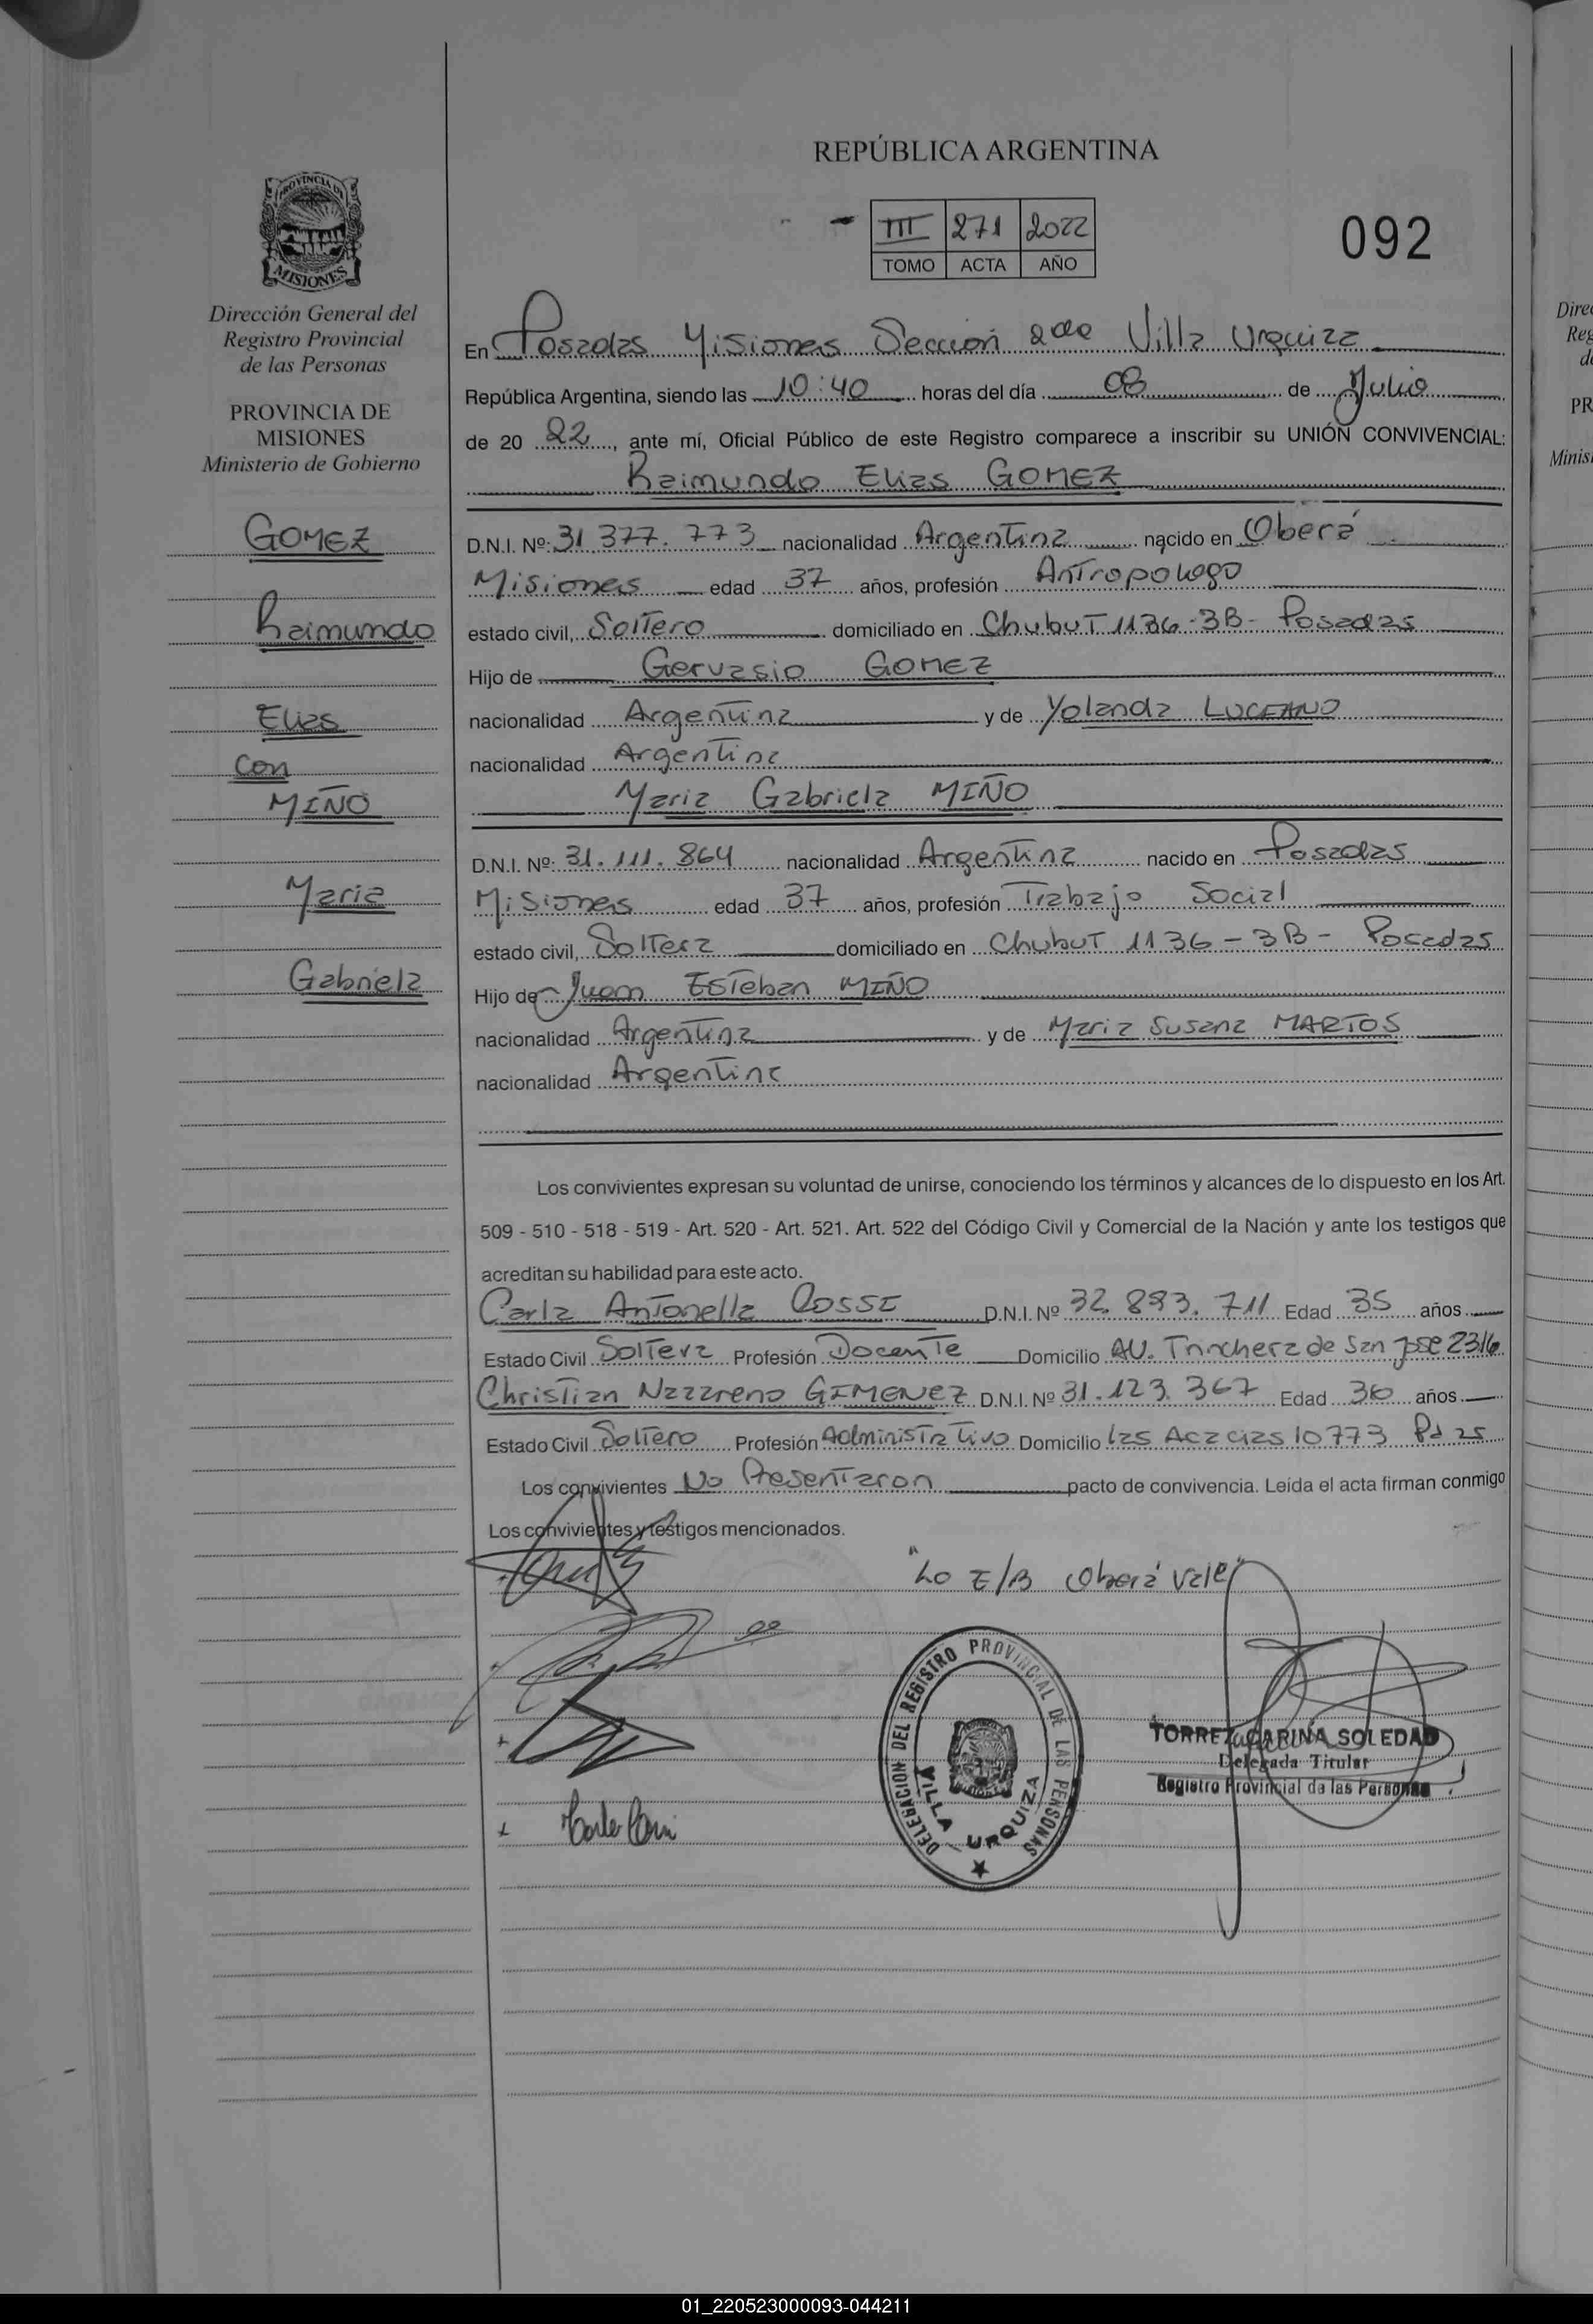 REPÚBLICA ARGENTINA
III 271 2022
TOMO ACTA AÑO
092
PROVINCIA DE
MISIONES
Dirección General del
Registro Provincial
de las Personas
PROVINCIA DE
MISIONES
Ministerio de Gobierno
GOMEZ
Raimundo
Elias
Con
MIÑO
Maria
Gabriela
En Posadas Misiones Sección 2da Villa Urquiza
República Argentina, siendo las 10:40 horas del día 08 de Julio
de 20 22, ante mí, Oficial Público de este Registro comparece a inscribir su UNIÓN CONVIVENCIAL:
Raimundo Elias GOMEZ
D.N.I. Nº: 31.377.773 nacionalidad Argentina nacido en Oberá
Misiones edad 37 años, profesión Antropologo
estado civil, Soltero domiciliado en Chubut 1136-3B- Posadas
Hijo de Gervasio GOMEZ
nacionalidad Argentina y de Yolanda
nacionalidad Argentina
Maria Gabriela MIÑO
D.N.I. Nº: 31.111.864 nacionalidad Argentina nacido en Posadas
Misiones edad 37 años, profesión Trabajo Social
estado civil, Soltera domiciliado en Chubut 1136-3B- Posadas
Hijo de Juan Esteban MIÑO
nacionalidad Argentina y de Maria Susana MARTOS
nacionalidad Argentina
Los convivientes expresan su voluntad de unirse, conociendo los términos y alcances de lo dispuesto en los Art.
509 - 510 - 518 - 519 - Art. 520 - Art. 521. Art. 522 del Código Civil y Comercial de la Nación y ante los testigos que
acreditan su habilidad para este acto.
Carla Antonella D.N.I. Nº 32.893.711 Edad 35 años
Estado Civil Soltera Profesión Docente Domicilio AV. Trinchera de San Jose 2316
Christian Nazareno GIMENEZ D.N.I. Nº 31.123.367 Edad 36 años
Estado Civil Soltero Profesión Administrativo Domicilio las Acacias 10773 Pdas
Los convivientes No Presentaron pacto de convivencia. Leída el acta firman conmigo
Los convivientes y testigos mencionados.
"Lo E/B Oberá Vale"
DELEGACION DEL REGISTRO PROVINCIAL DE LAS PERSONAS
VILLA URQUIZA
TORREZ CARINA SOLEDAD
Delegada Titular
Registro Provincial de las Personas
Direc
Reg
de
PR
Minis
01_220523000093-044211